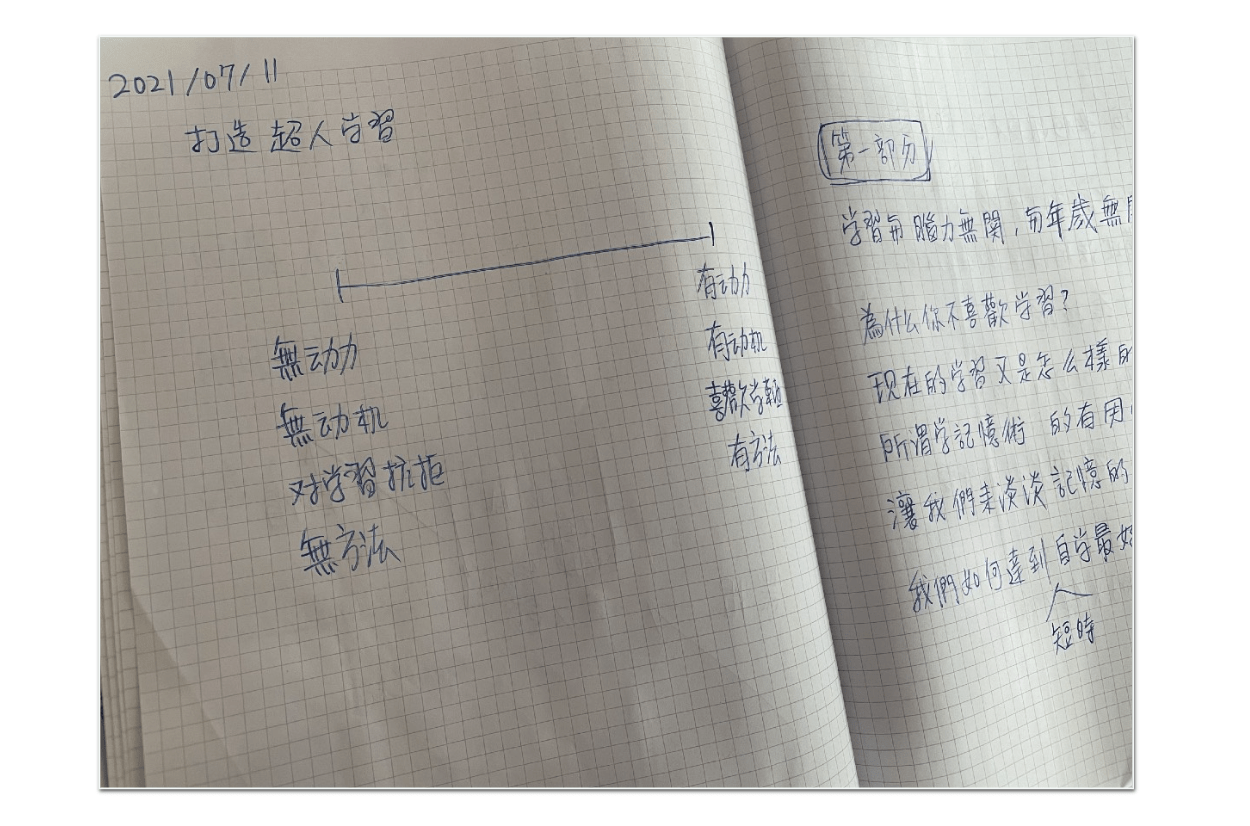 2021/07/11
打造 超人学習
無动力
無动机
对学習抗拒
無方法
有动力
有动机
喜歡学
有方法
第一部分
学習与腦力無関,与年歲無
為什么你不喜歡学習?
现在的学習又是怎么樣的
所謂学記憶術 的有用
讓我們来淡淡記憶的
我們如何達到自学最好
短時